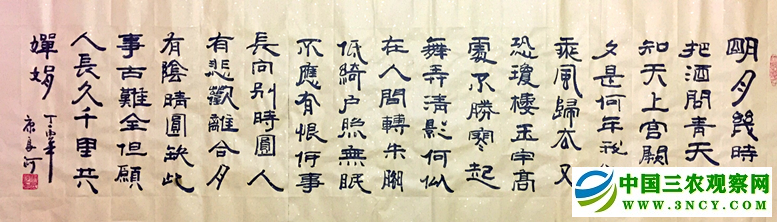 明月幾時
把酒問青天
知天上宫闕
夕是何年我
乘風歸去又
恐瓊樓玉宇高
處不勝寒起
舞弄清影何似
在人間轉朱閣
低綺户照無眠
不應有恨何事
長向别時圓人
有悲歡離合月
有陰晴圓缺此
事古難全但願
人長久千里共
嬋娟
丁酉年
中国三农观察网
WWW.3NCY.COM